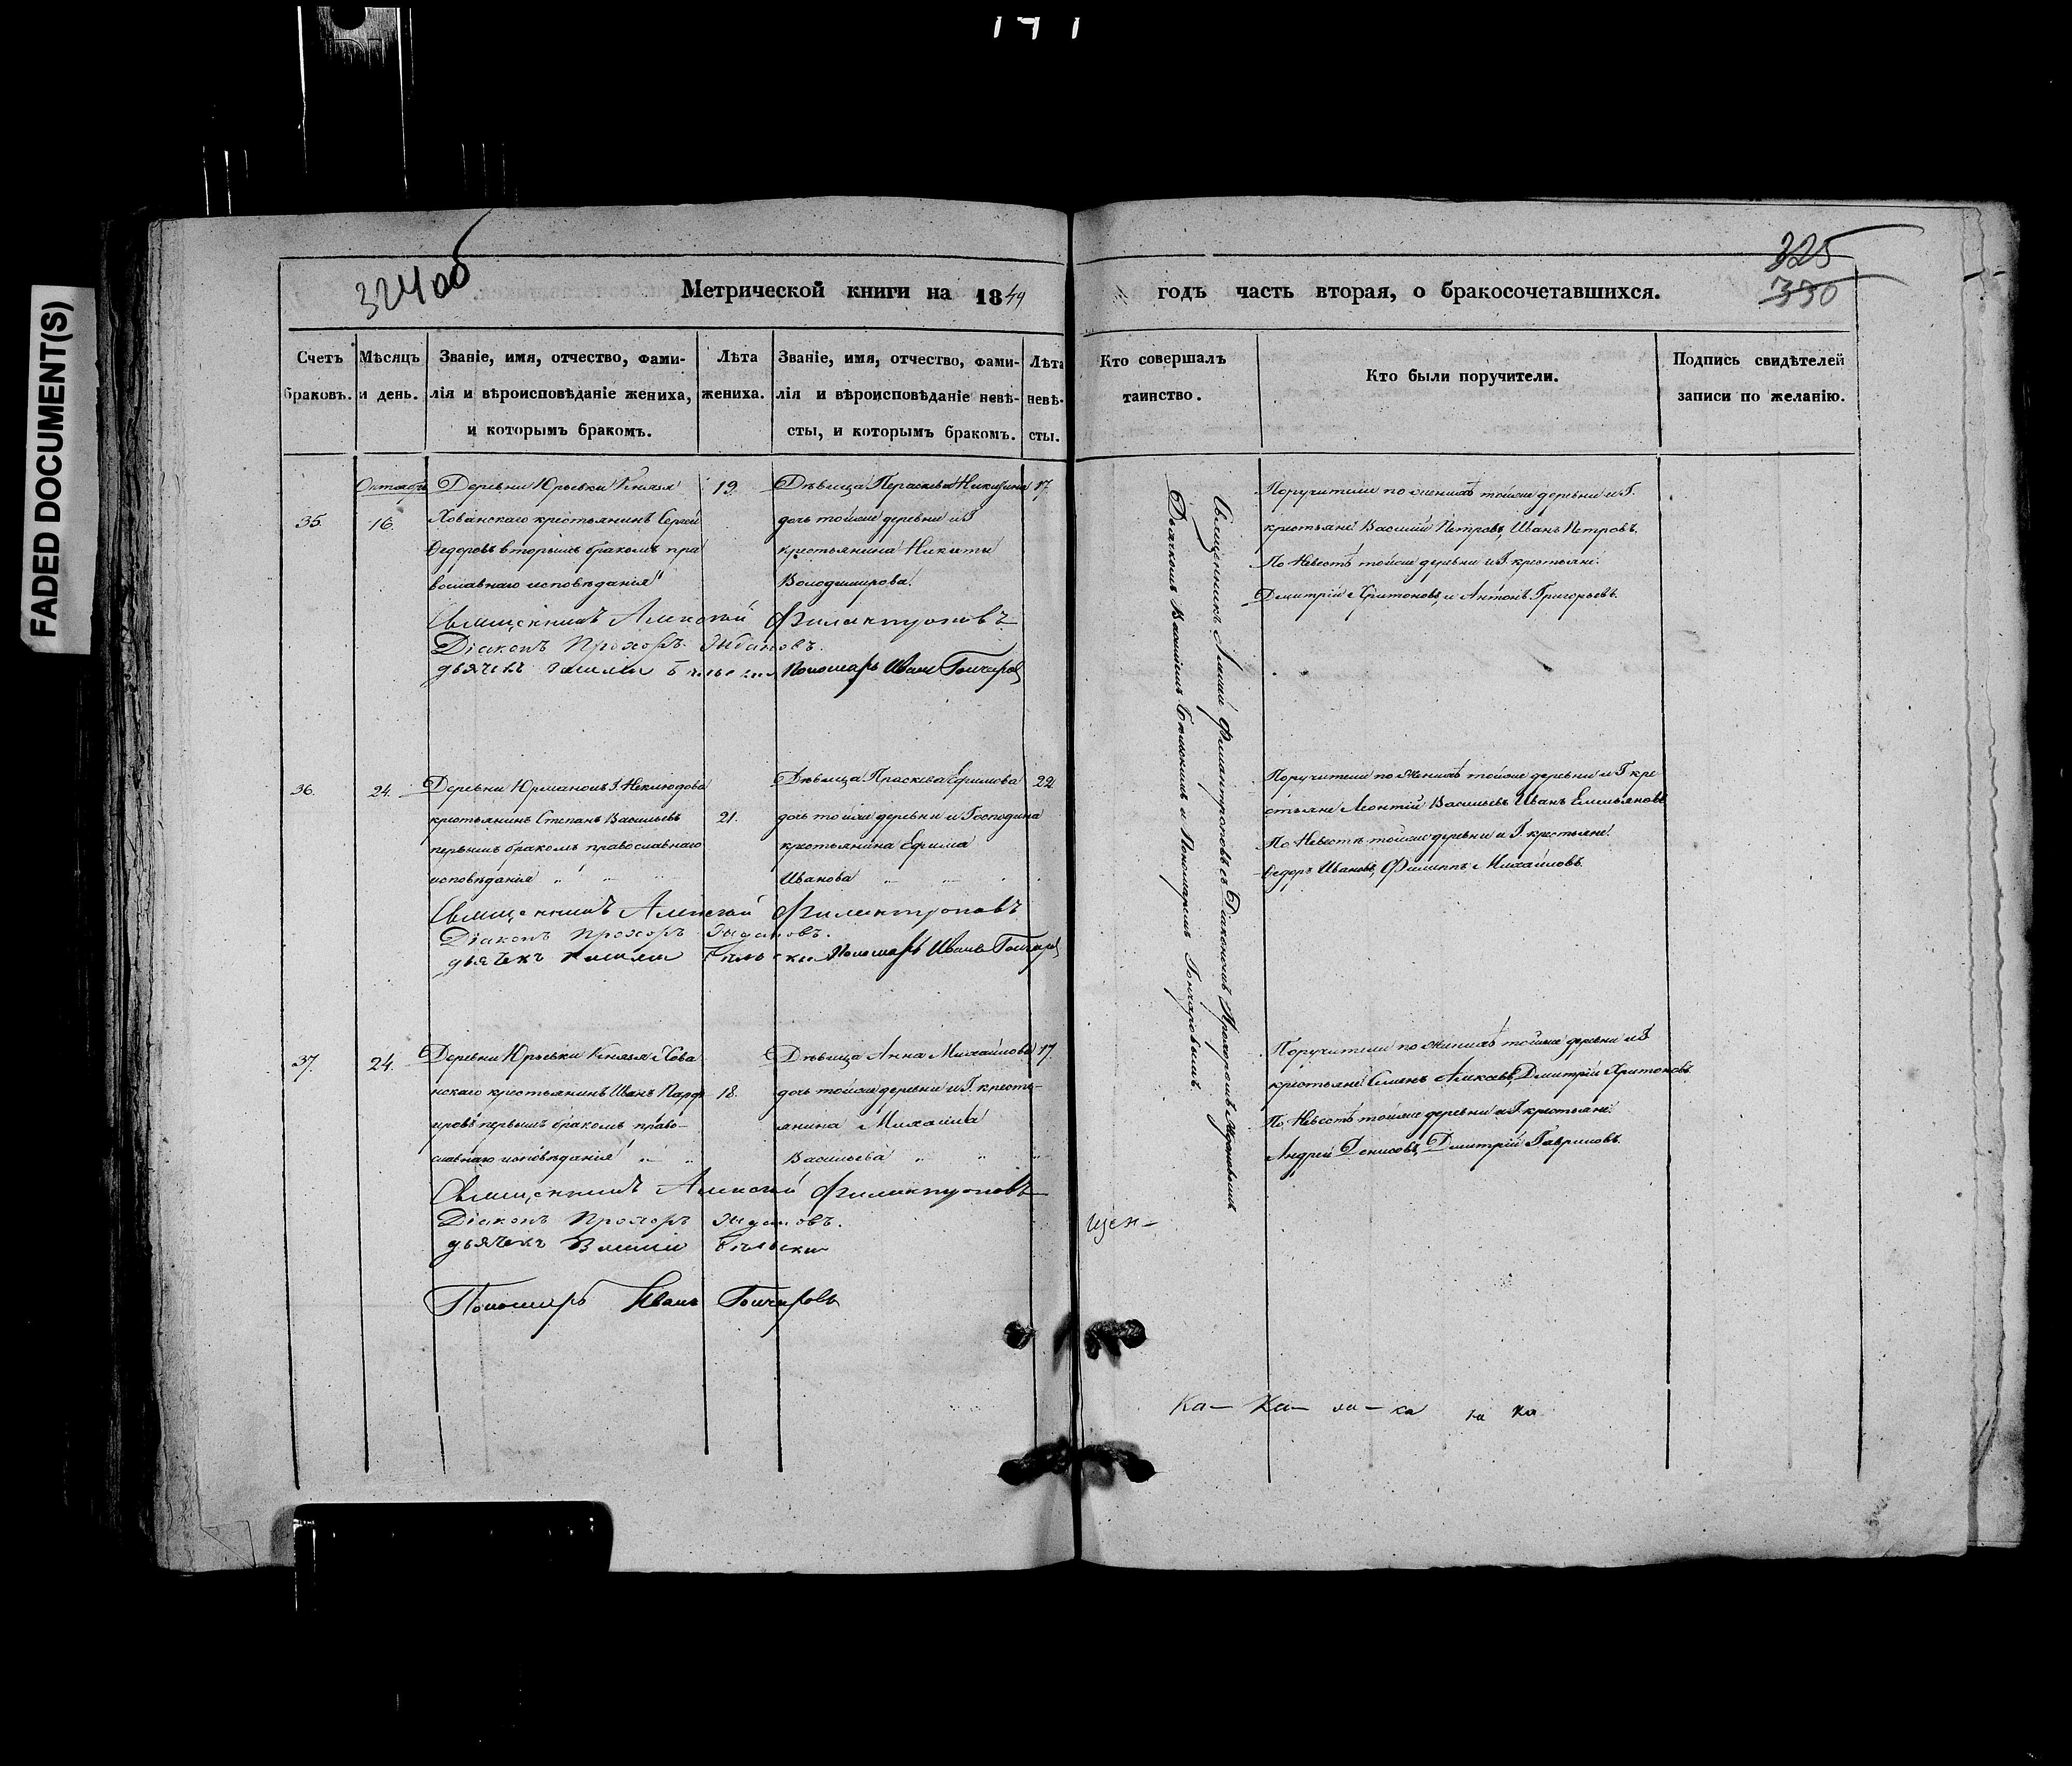 FADED DOCUMENT(S)
324об
Метрической книги на 1849
Счетъ браковъ.
Мѣсяцъ и день.
Званіе, имя, отчество, фами-
лія и вѣроисповѣданіе жениха,
и которымъ бракомъ.
Лѣта
жениха.
Званіе, имя, отчество, фами-
лія и вѣроисповѣданіе невѣ-
сты, и которымъ бракомъ.
Лѣта
невѣ-
сты.
35.
Октябрь
16.
Деревни Юрьевки Князя
Хованскаго крестьянинъ Сергей
Федоровъ вторымъ бракомъ пра
вославнаго исповѣданія
19.
Дѣвица Параскева Никитина
дочь тойже деревни и Г
крестьянина Никиты
Володимирова.
17.
Священникъ Алексей Филантроповъ
Діаконъ Прохоръ
дьячекъ
Пономарь Иванъ Гончаровъ
36.
24.
Деревни Юрманокъ Г. Неклюдова
крестьянинъ Степанъ Васильевъ
первымъ бракомъ православнаго
исповѣданія
21.
Дѣвица Прасковья Ефимова
дочь тойже деревни и Господина
крестьянина Ефима
Иванова
22
Священникъ Алексей Филантроповъ
Діаконъ Прохоръ
дьячекъ
Пономарь Иванъ Гончаровъ
37.
24.
Деревни Юрьевки Князя Хова
нскаго крестьянинъ Иванъ Парф
ировъ первымъ бракомъ право-
славнаго исповѣданія
18.
Дѣвица Анна Михайлова
дочь тойже деревни и Г. кресть-
янина Михаила
Васильева
17.
Священникъ Алексей Филантроповъ
Діаконъ Прохоръ
дьячекъ Василий Бѣльский
Пономарь Иванъ Гончаровъ
325
330
годъ часть вторая, о бракосочетавшихся.
Кто совершалъ
таинство.
Кто были поручители.
Подпись свидѣтелей
записи по желанію.
Священникъ Алексей Филантроповъ съ Діакономъ Прохоромъ
Дьячкомъ Василіемъ Бѣльскимъ и Пономаремъ Гончаровымъ
Поручители по женихѣ тойже деревни и Г.
крестьяне Василий Петровъ, Иванъ Петровъ.
По Невестѣ тойже деревни и Г. крестьяне.
Дмитрій Харитоновъ, и Антонъ Григорьевъ.
Поручители по женихѣ тойже деревни и Г кре
стьяне Леонтій Васильевъ Иванъ Емельяновъ
По Невестѣ тойже деревни и Г. крестьяне.
Федоръ Ивановъ, Филиппъ Михайловъ.
Поручители по женихѣ тойже деревни и Г
крестьяне Семенъ Алексеевъ, Дмитрій Харитоновъ.
По Невестѣ тойже деревни и Г крестьяне.
Андрей Денисовъ, Дмитрій Гавриловъ.
щен-
Ка- Ка- ка- ка ка ка